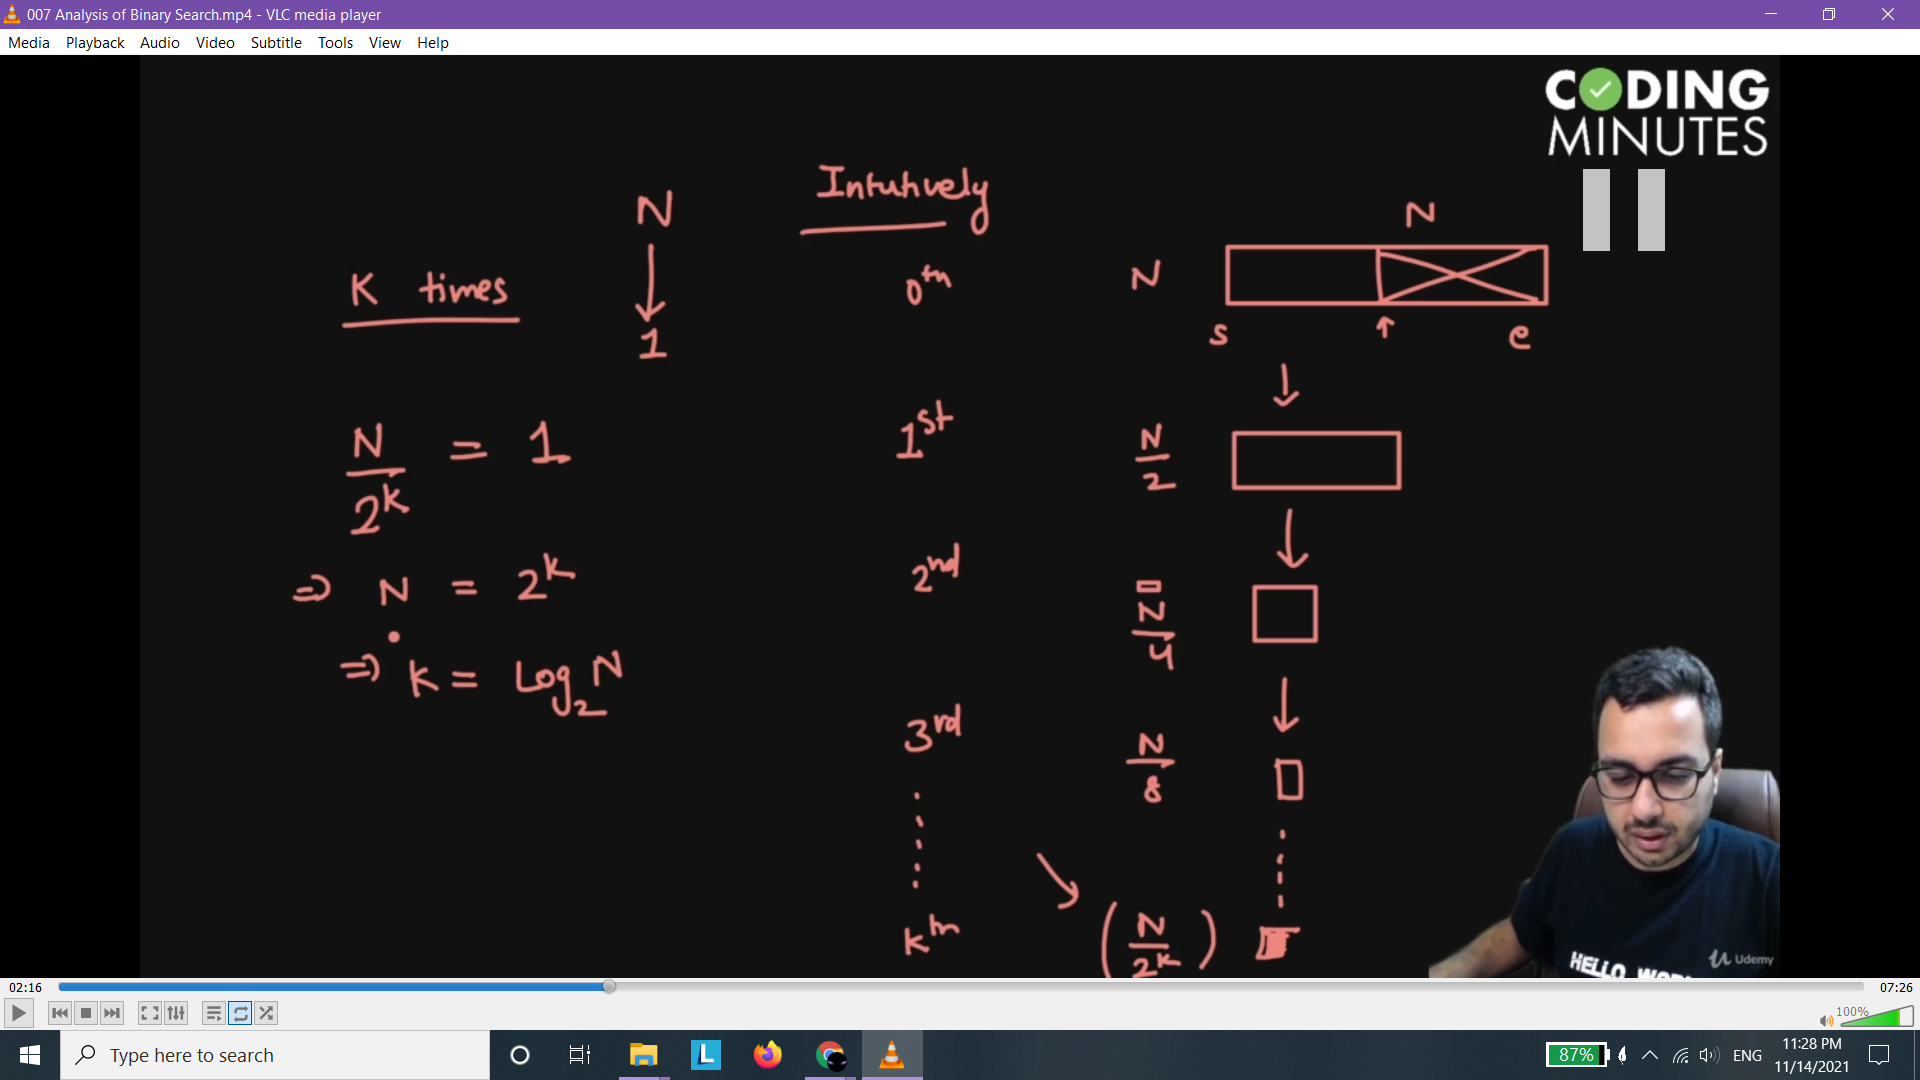 007 Analysis of Binary Search.mp4 - VLC media player
Media Playback Audio Video Subtitle Tools View Help
CODING
MINUTES
Intutively
N
↓
1
K times
N/2^k = 1
=> N = 2^k
=> K = Log₂ N
0th N
1st N/2
2nd N/4
3rd N/8
kth (N/2^k)
N
s ↑ e
HELLO WOR
Udemy
02:16 07:26
100%
Type here to search
L
87% ENG 11:28 PM
11/14/2021